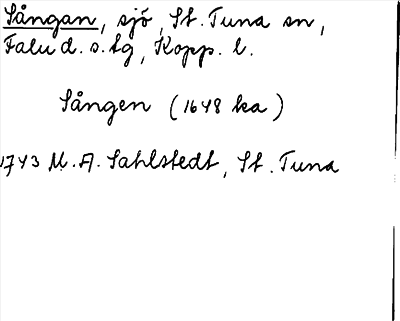 Sången, sjö, St. Tuna sn,
Falu d. s. tg, Kopp. l.
Sången (1648 ka)
1743 M. A. Sahlstedt, St. Tuna